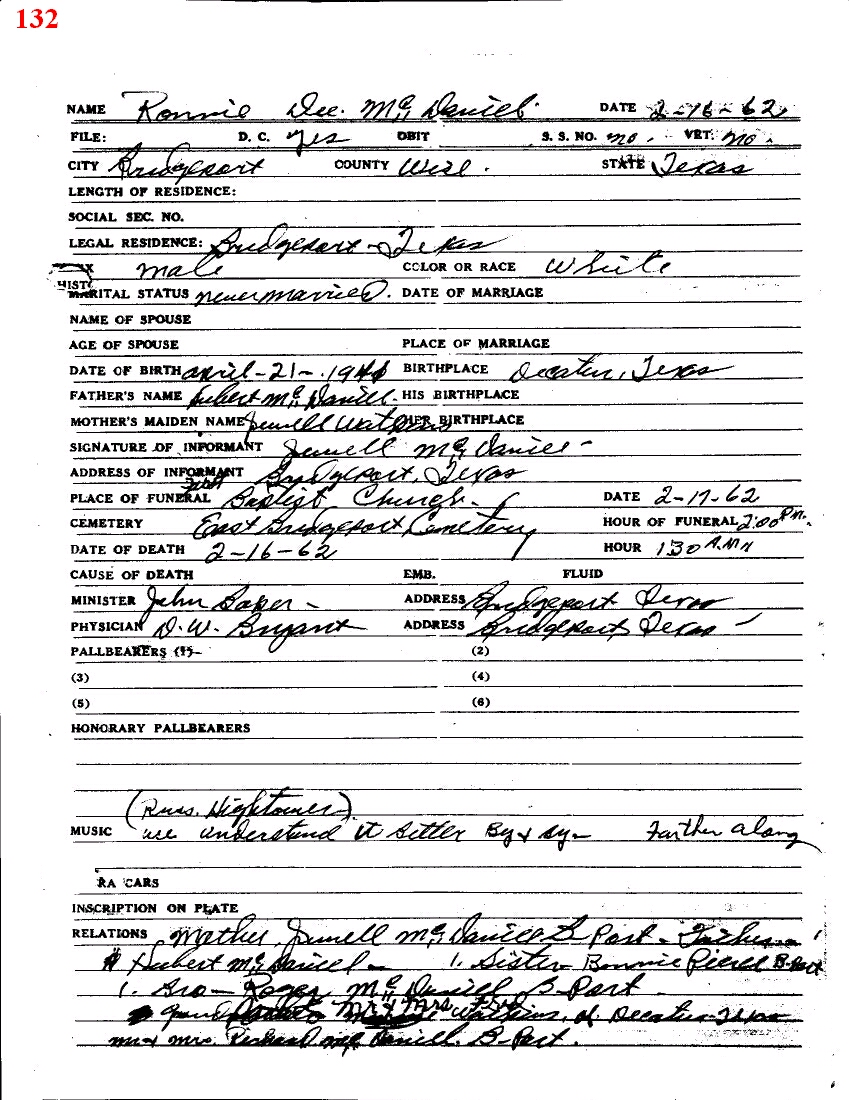 132
NAME Ronnie Dee. Mc Daniel. DATE 2-16-62
FILE: D. C. yes OBIT S. S. NO. no. VET. no.
CITY Bridgeport COUNTY Wise. STATE Texas
LENGTH OF RESIDENCE:
SOCIAL SEC. NO.
LEGAL RESIDENCE: Bridgeport - Texas
male COLOR OR RACE White
MARITAL STATUS never married. DATE OF MARRIAGE
NAME OF SPOUSE
AGE OF SPOUSE PLACE OF MARRIAGE
DATE OF BIRTH april-21-. BIRTHPLACE Decatur, Texas
FATHER'S NAME Hubert Mc Daniel. HIS BIRTHPLACE
MOTHER'S MAIDEN NAME Jewell Watkins HER BIRTHPLACE
SIGNATURE OF INFORMANT Jewell Mc Daniel -
ADDRESS OF INFORMANT Bridgeport, Texas
First
PLACE OF FUNERAL Baptist Church - DATE 2-17-62
CEMETERY East Bridgeport Cemetery HOUR OF FUNERAL 2:00 P.M.
DATE OF DEATH 2-16-62 HOUR 130 A.M
CAUSE OF DEATH EMB. FLUID
MINISTER John Baker - ADDRESS Bridgeport Texas
PHYSICIAN D. W. Bryant ADDRESS Bridgeport Texas -
PALLBEARERS (1) (2)
(3) (4)
(5) (6)
HONORARY PALLBEARERS
(Russ. Hightower)
MUSIC understand it Better By & By - Farther along
RA CARS
INSCRIPTION ON PLATE
RELATIONS Mother Jewell Mc Daniel B Port - Father
Hubert Mc Daniel - 1. Sister Bonnie B-Port
1. Bro - Roger Mc Daniel B-Port
Grand Mr & Mrs Watkins, of Decatur Texas
mr & mrs. Richard Mc Daniel. B-Port.